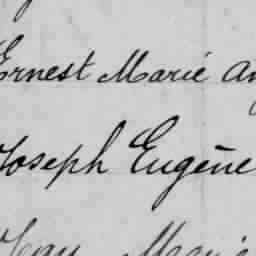 Ernest Marie
Joseph Eugène
Jean Marie